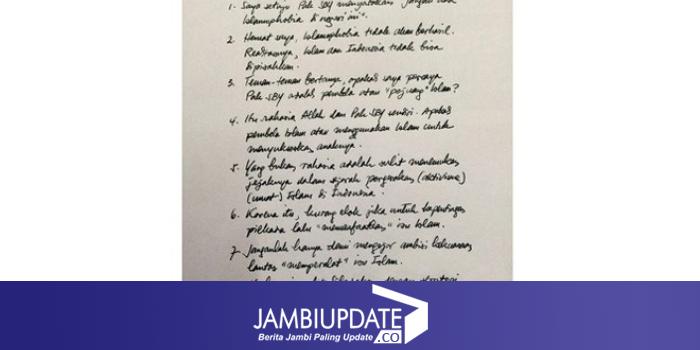 1. Saya setuju Pak SBY mengatakan "jangan ada
Islamophobia di negeri ini".
2. Hemat saya, Islamophobia tidak akan berhasil.
Realitasnya, Islam dan Indonesia tidak bisa
dipisahkan.
3. Teman-teman bertanya, apakah saya percaya
Pak SBY adalah pembela atau "pejuang" Islam?
4. Itu rahasia Allah dan Pak SBY sendiri. Apakah
pembela Islam atau menggunakan Islam untuk
menyukseskan anaknya.
5. Yang bukan rahasia adalah sulit menemukan
jejaknya dalam sejarah pergerakan (aktivisme)
(umat) Islam di Indonesia.
6. Karena itu, kurang elok jika untuk kepentingan
pilkada lalu "memanfaatkan" isu Islam.
7. Janganlah hanya demi mengejar ambisi kekuasaan
lantas "memperalat" isu Islam.
JAMBIUPDATE
.CO
Berita Jambi Paling Update